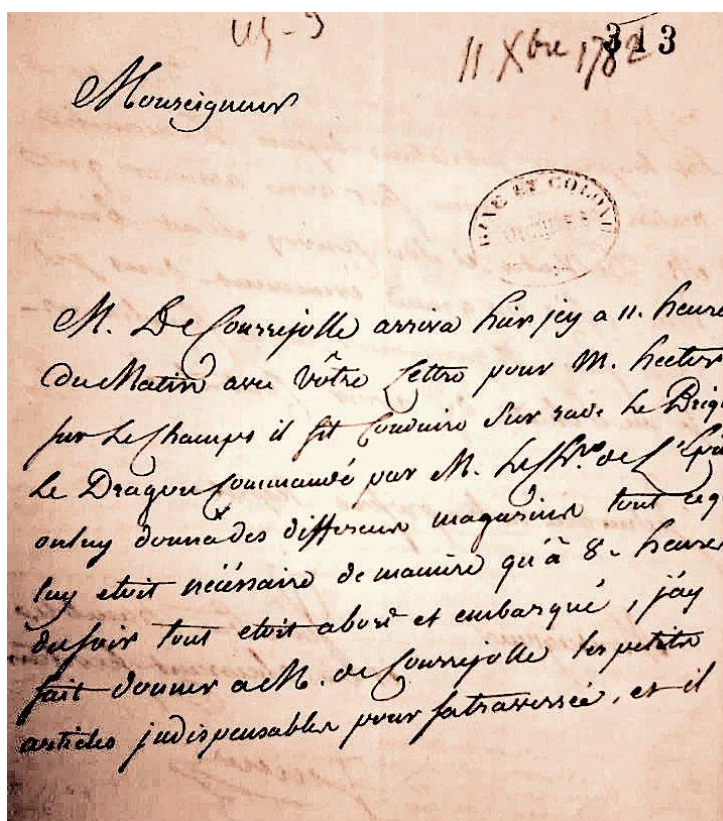 313
11 Xbre 1782
Monseigneur
M. De Courrejolle arriva hier jcy a 11. heure
Du Matin avec vôtre Lettre pour M. hector
sur Le Champs il fit Conduire Sur rade Le Brig
Le Dragon Commandé par M. Le Ch.er de L'Epi
onluy donna des differens magasins tout ceq
luy etoit nécéssaire de maniere qu'à 8. heures
du soir tout etoit abord et embarqué, j'ay
fait donner a M. de Courrejolle les petits
articles jndispensables pour sa traversée, et il